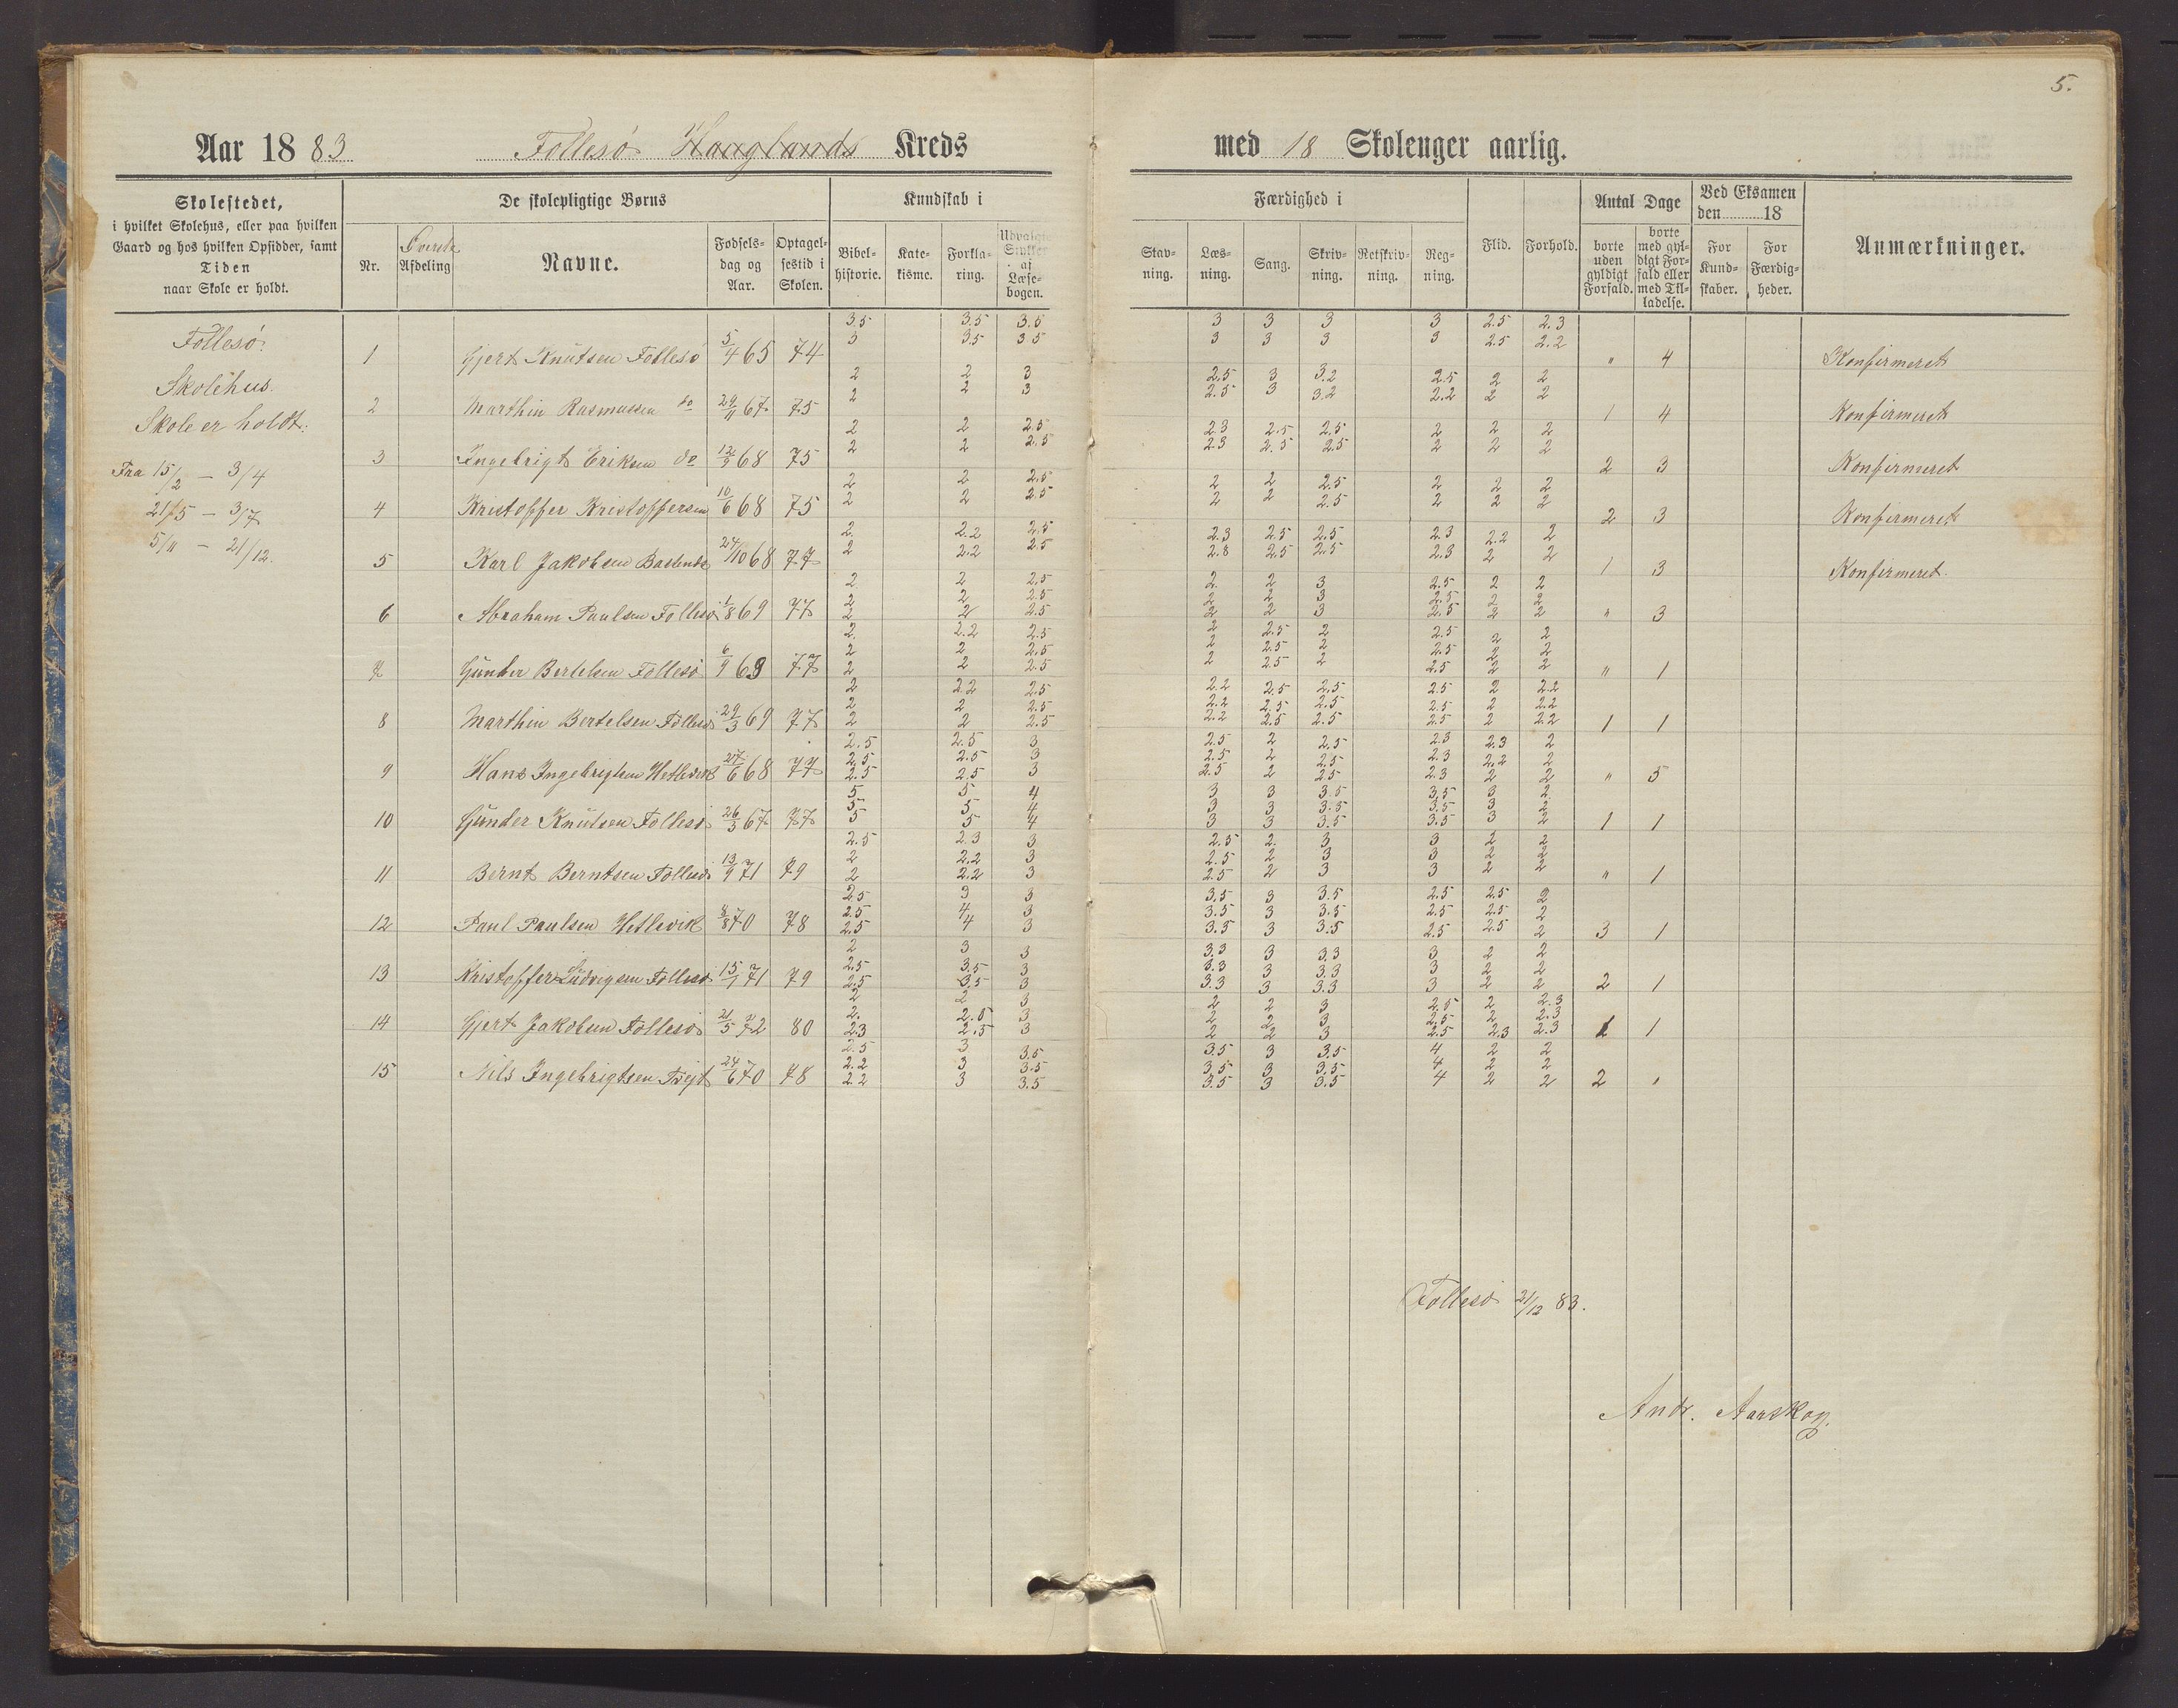 5.
Aar 1883 Follesø Hauglands Kreds med 18 Skolenger aarlig.
Skolestedet,
i hvilket Skolehus, eller paa hvilken
Gaard og hos hvilken Opsidder, samt
Tiden
naar Skole er holdt.
De skolepligtige Børns
Nr.
Øverste
Afdeling
Navne.
Fødsels-
dag og
Aar.
Optagel-
sestid i
Skolen.
Kundskab i
Bibel-
historie.
Kate-
kisme.
Forkla-
ring.
Udvalgte
Stykker
af
Læse-
bogen.
Færdighed i
Stav-
ning.
Læs-
ning.
Sang.
Skriv-
ning.
Retskriv-
ning.
Reg-
ning.
Flid.
Forhold.
Antal Dage
borte
uden
gyldigt
Forfald.
borte
med gyl-
digt For-
fald eller
med Til-
ladelse.
Ved Eksamen
den 18
For
Kund-
skaber.
For
Færdig-
heder.
Anmærkninger.
Follesø
Skolehus.
Skole er holdt:
Fra 15/2 - 3/4
21/5 - 3/7
5/11 - 21/12.
3.5 3.5 3.5 3 3 3 3 2.5 2.3
3 3.5 3.5 3 3 3 3 2.5 2.2
1 Gjert Knutsen Follesø 5/4 65 74 " 4 Konfirmeret
2 2 3 2.5 3 3.2 2.5 2 2
2 2 3 2.5 3 3.2 2.2 2 2
2 Marthin Rasmussen do 29/11 67 75 1 4 Konfirmeret
2 2 2.5 2.3 2.5 2.5 2 2 2
2 2 2.5 2.3 2.5 2.5 2 2 2
3 Ingebrigt Eriksen do 12/9 68 75 2 3 Konfirmeret
2 2 2.5 2 2 2.5 2 2 2
2 2 2.5 2 2 2.5 2 2 2
4 Kristoffer Kristoffersen 10/6 68 75 2 3 Konfirmeret
2 2.2 2.5 2.3 2.5 2.5 2.3 2.2 2
2 2.2 2.5 2.8 2.5 2.5 2.3 2 2
5 Karl Jakobsen 24/10 68 77 1 3 Konfirmeret.
2 2 2.5 2 2 3 2.5 2 2
2 2 2.5 2 2 3 2.5 2 2
6 Abraham Paulsen Follesø 1/8 69 77 2 2 2.5 2 2 3 2.5 2 2 " 3
2 2.2 2.5 2 2.5 2 2.5 2 2
2 2 2.5 2 2.5 2 2.5 2 2
7 Gunder Bertelsen Follesø 6/9 69 77 2 2 2.5 2 2.5 2 2.5 2 2 " 1
2 2.2 2.5 2.2 2.5 2.5 2.5 2 2.2
2 2 2.5 2.2 2.5 2.5 2.5 2 2.2
8 Marthin Bertelsen Follesø 29/3 69 77 2 2 2.5 2.2 2.5 2.5 2.5 2 2.2 1 1
2.5 2.5 3 2.5 2 2.5 2.3 2.3 2
2.5 2.5 3 2.5 2 2.5 2.3 2.2 2
9 Hans Ingebrigtsen Hetlevik 27/6 68 77 2.5 2.5 3 2.5 2 2.5 2.3 2 2 " 5
5 5 4 3 3 3.5 3.5 3 2
5 5 4 3 3 3.5 3.5 3 2
10 Gunder Knutsen Follesø 26/3 67 77 5 5 4 3 3 3.5 3.5 3 2 1 1
2.5 2.3 3 2.5 2 3 3 2 2
2 2.2 3 2.5 2 3 3 2 2
11 Bernt Berntsen Follesø 13/9 71 79 2 2.2 3 2.5 2 3 3 2 2 " 1
2.5 3 3 3.5 3 3.5 2.5 2.5 2
2.5 4 3 3.5 3 3.5 2.5 2.5 2
12 Paul Paulsen Hetlevik 70 78 2.5 4 3 3.5 3 3.5 2.5 2.5 2 3 1
2 3 3 3.3 3 3.3 3 2 2
2.5 3.5 3 3.3 3 3.3 3 2 2
13 Kristoffer Ludvigsen Follesø 15/1 71 79 2.5 3.5 3 3.3 3 3.3 3 2 2 2 1
2 2 3 2 2 3 2.5 2 2.3
2. 2.5 3 2 2 3 2.5 2 2.3
14 Gjert Jakobsen Follesø 21/5 72 80 2.3 2.5 3 2 2 3 2.5 2.3 2.3 1 1
2.5 3 3.5 3.5 3 3.5 4 2 2
2.2 3 3.5 3.5 3 3.5 4 2 2
15 Nils Ingebrigtsen Tveit 24/6 70 78 2.2 3 3.5 3.5 3 3.5 4 2 2 2 "
Follesø 21/12 83.
Andr. Aarskog.